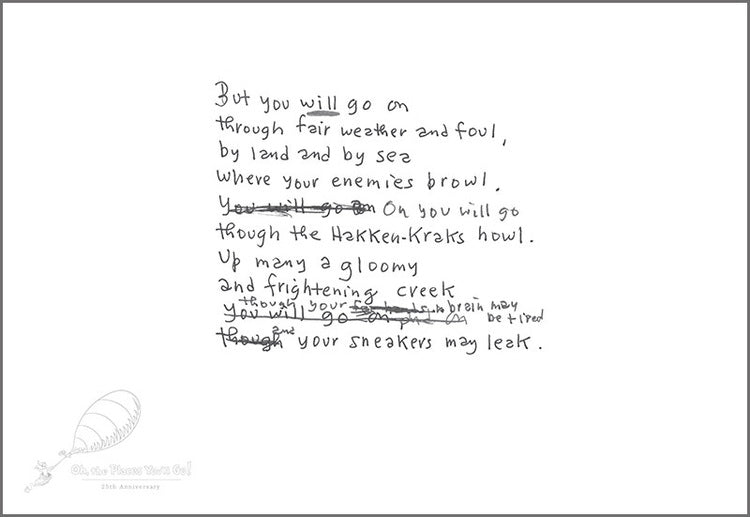 But you will go on
through fair weather and foul,
by land and by sea
where your enemies prowl.
You will go on On you will go
though the Hakken-Kraks howl.
Up many a gloomy
and frightening creek
though your brain may
you will go on and on be tired
though and your sneakers may leak.
Oh, the Places You'll Go!
25th Anniversary